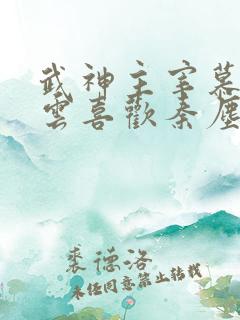 武神主宰慕
雲喜歡秦塵
裘德洛
未经同意禁止转载